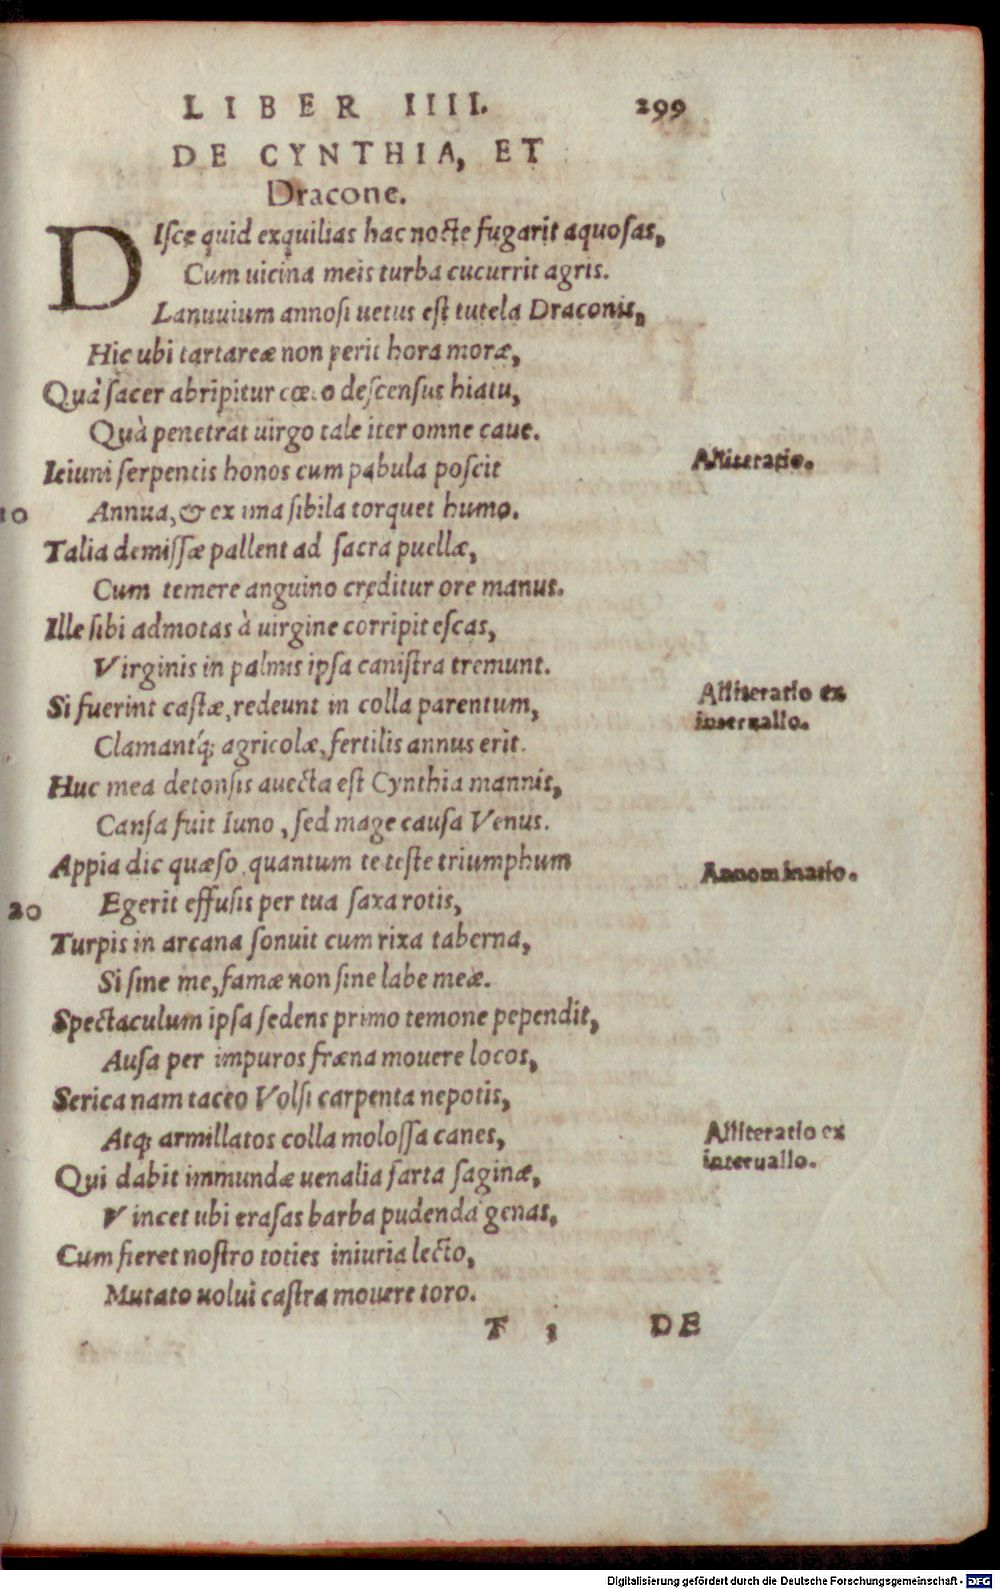 LIBER IIII. 299
DE CYNTHIA, ET
Dracone.
DIſce quid exquilias hac nocte fugarit aquoſas,
Cum uicina meis turba cucurrit agris.
Lanuuium annoſi uetus eſt tutela Draconis,
Hic ubi tartareæ non perit hora moræ,
Quà ſacer abripitur cœ.o deſcenſus hiatu,
Quà penetrat uirgo tale iter omne caue.
Ieiuni ſerpentis honos cum pabula poſcit Alliteratio.
10 Annua, & ex ima ſibila torquet humo.
Talia demiſſæ pallent ad ſacra puellæ,
Cum temere anguino creditur ore manus.
Ille ſibi admotas à uirgine corripit eſcas,
Virginis in palmis ipſa caniſtra tremunt.
Si fuerint caſtæ, redeunt in colla parentum, Alliteratio ex
interuallo.
Clamantq́; agricolæ, fertilis annus erit.
Huc mea detonſis auecta eſt Cynthia mannis,
Canſa fuit Iuno, ſed mage cauſa Venus.
Appia dic quæſo, quantum te teſte triumphum Annominatio.
20 Egerit effuſis per tua ſaxa rotis,
Turpis in arcana ſonuit cum rixa taberna,
Si ſine me, famæ non ſine labe meæ.
Spectaculum ipſa ſedens primo temone pependit,
Auſa per impuros fræna mouere locos,
Serica nam taceo Volſi carpenta nepotis,
Atq; armillatos colla moloſſa canes, Alliteratio ex
interuallo.
Qui dabit immundæ uenalia ſarta ſaginæ,
Vincet ubi eraſas barba pudenda genas,
Cum fieret noſtro toties iniuria lecto,
Mutato uolui caſtra mouere toro.
T 3 DE
Digitalisierung gefördert durch die Deutsche Forschungsgemeinschaft - DFG